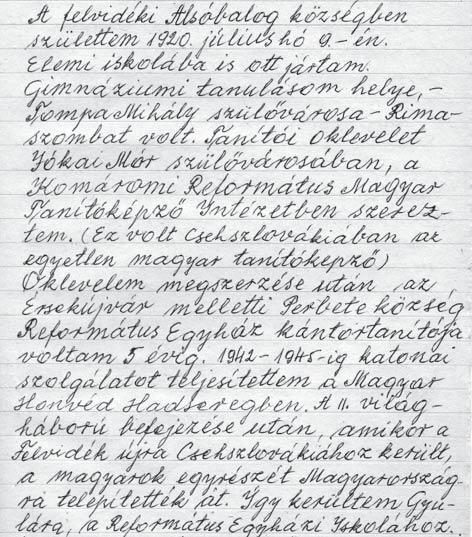 A felvidéki Alsóbalog községben
születtem 1920. július hó 9.-én.
Elemi iskolába is ott jártam.
Gimnáziumi tanulásom helye, -
Tompa Mihály szülővárosa - Rima-
szombat volt. Tanítói oklevelet
Jókai Mór szülővárosában, a
Komáromi Református Magyar
Tanítóképző Intézetben szerez-
tem. (Ez volt Csehszlovákiában az
egyetlen magyar tanítóképző)
Oklevelem megszerzése után az
Érsekújvár melletti Perbete község
Református Egyház kántortanítója
voltam 5 évig. 1942-1945-ig katonai
szolgálatot teljesítettem a Magyar
Honvéd Hadseregben. A II. világ-
háború befejezése után, amikor a
Felvidék újra Csehszlovákiához került,
a magyarok egyrészét Magyarország-
ra telepítették át. Így kerültem Gyu-
lára, a Református Egyházi Iskolához.